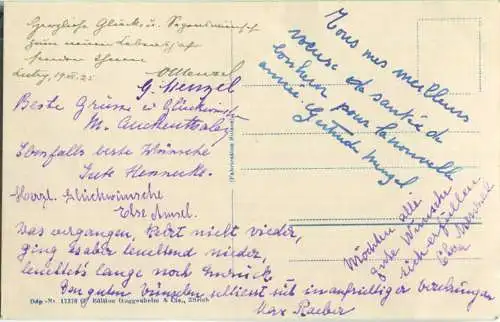 Herzliche Glück u. Segenswünsche
zum neuen Lebensjahr
senden Ihnen
O. Menzel
G. Menzel
Beste Grüsse u Glückwünsch
M. Auckenthaler
Ebenfalls beste Wünsche
Hennecke.
Herzl. Glückwünsche
Else Amsel.
Was vergangen, kehrt nicht wieder,
ging es aber leuchtend nieder,
leuchtet's lange noch zurück
Den guten Wünschen schliesst sich in aufrichtiger Verehrung an
Max Raeber
Tous mes meilleurs
voeux de santé de
bonheur pour la nouvelle
année. Gertrude Menzel
Möchten alle
gute Wünsche
sich erfüllen
Elsa
Edition Guggenheim & Cie., Zürich